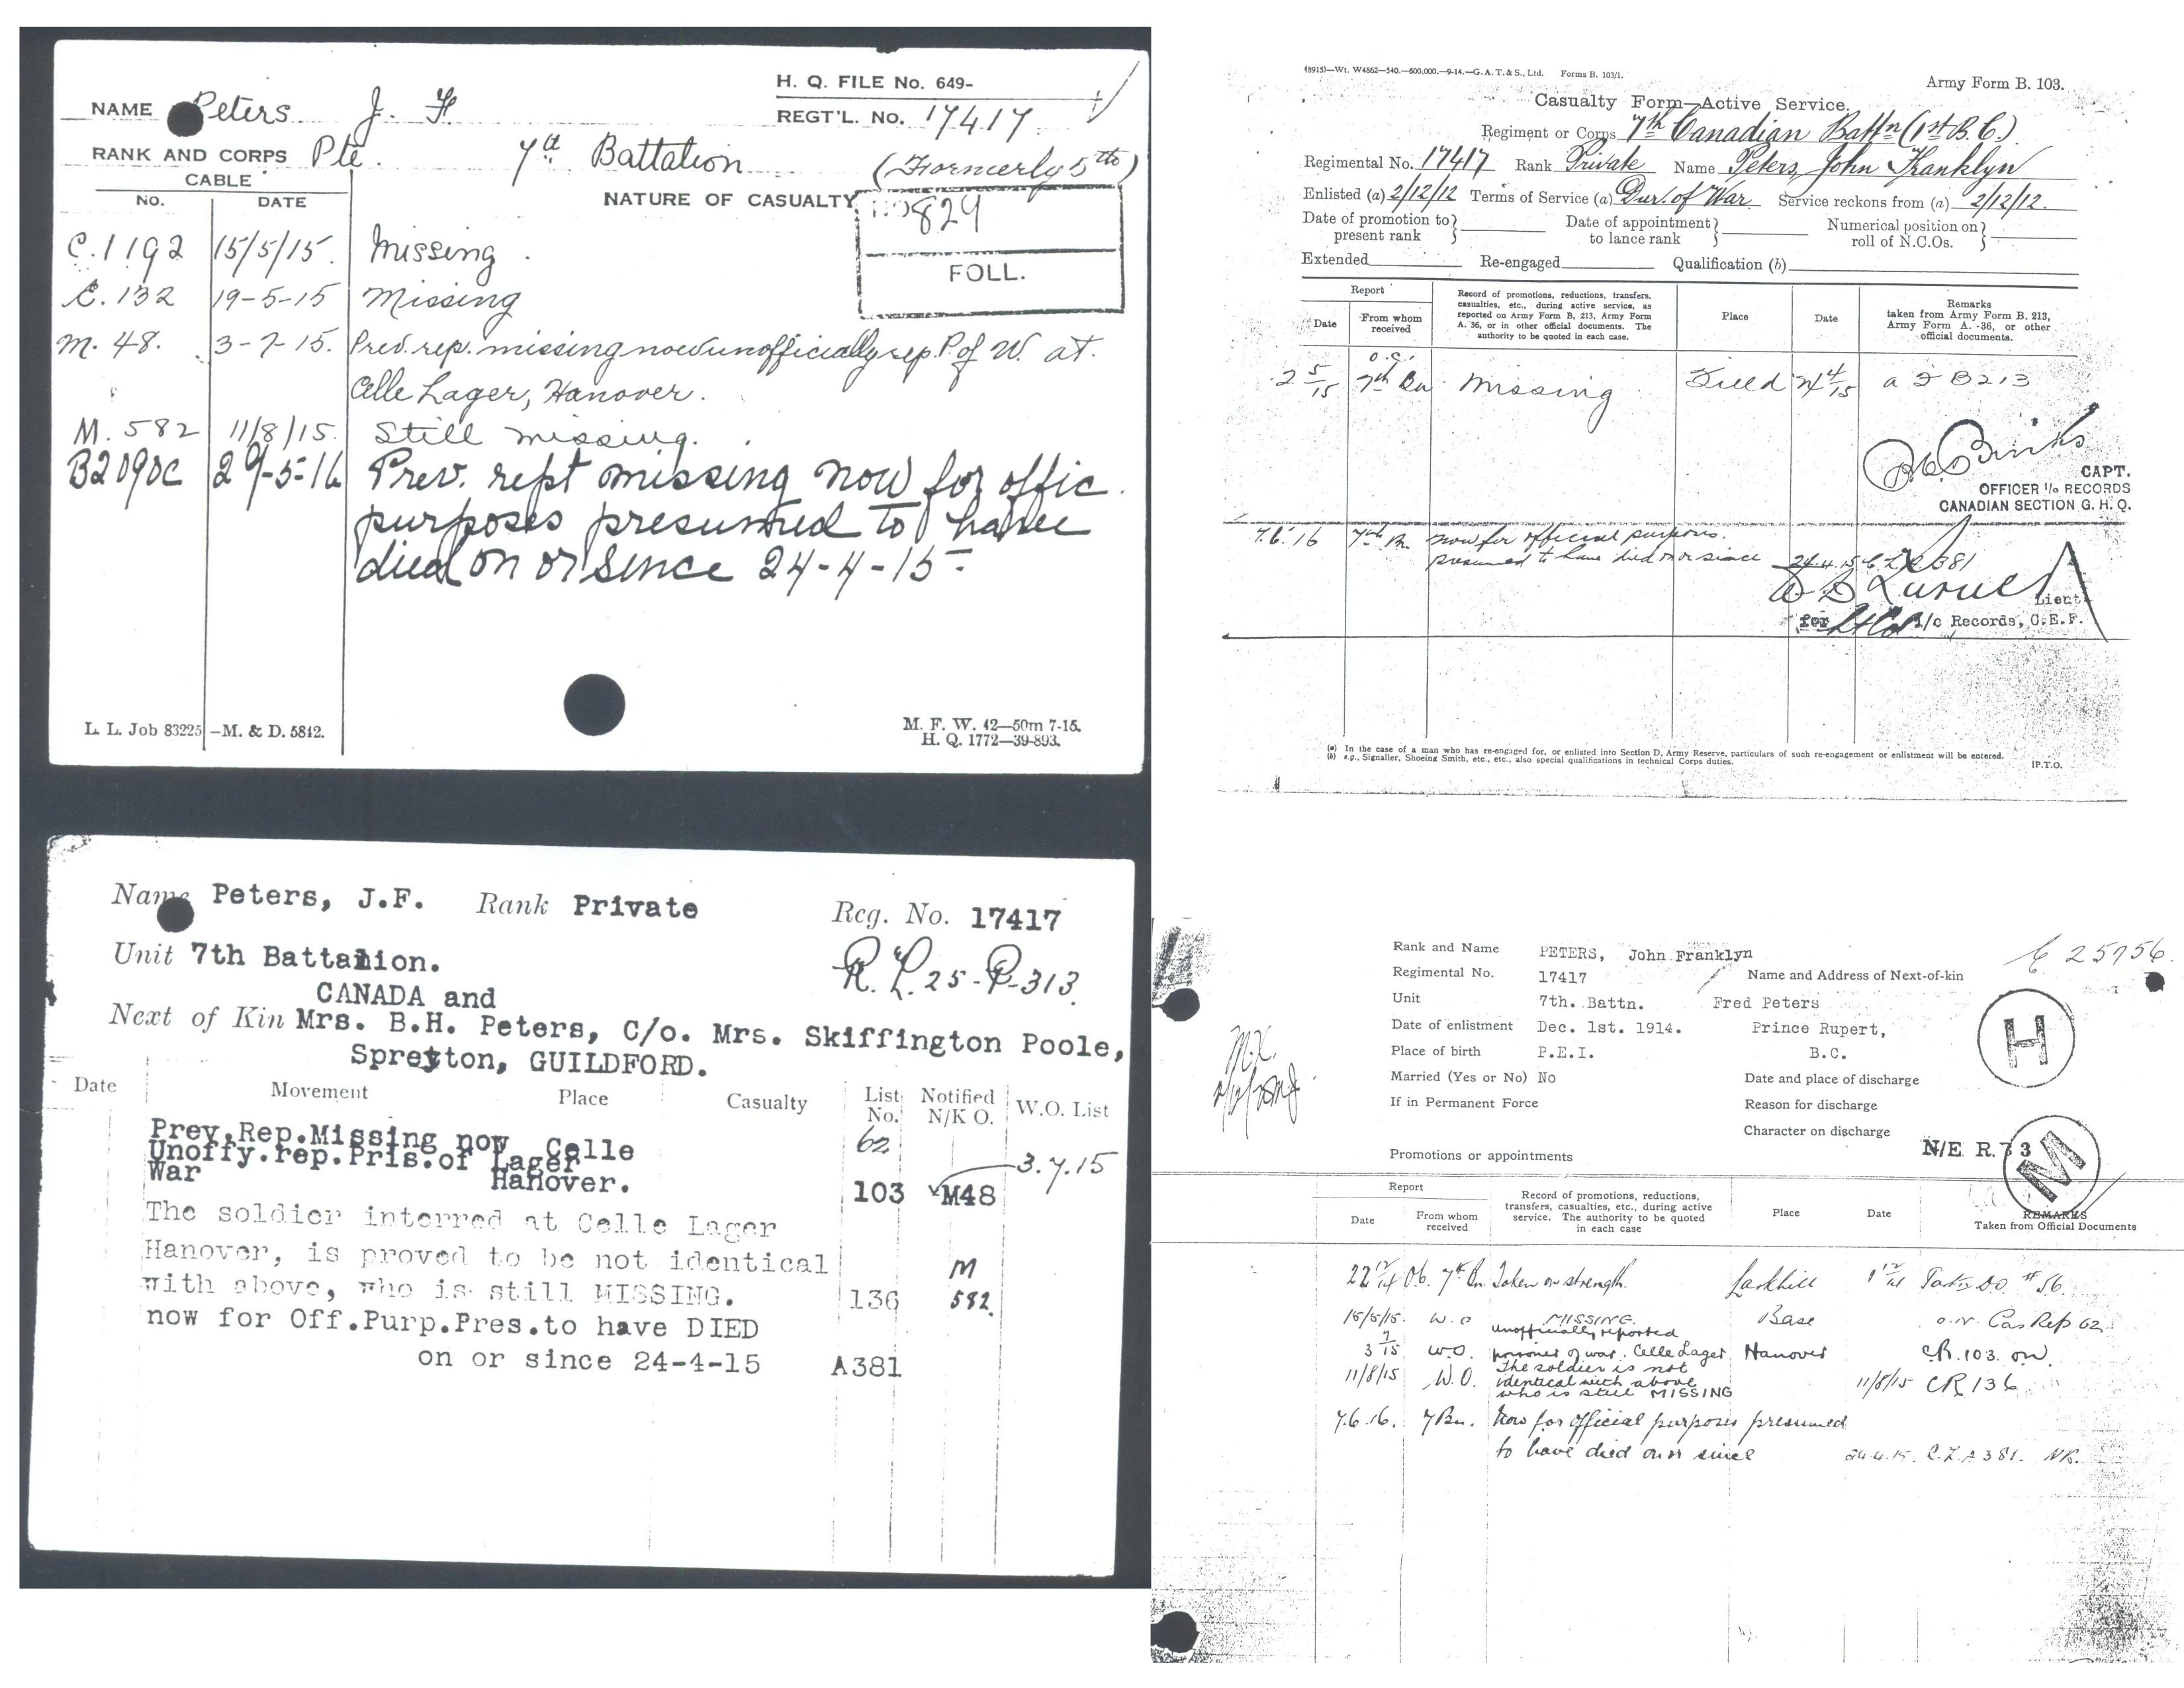 H. Q. FILE No. 649-
NAME Peters J. F.
REGT'L. No. 17417
RANK AND CORPS Pte. 7th Battalion (Formerly 5th)
CABLE
NO. DATE NATURE OF CASUALTY
829
FOLL.
C.1192 15/5/15. Missing.
C.132 19-5-15 Missing
M. 48. 3-7-15. Prev. rep. missing now unofficially rep. P of W. at.
Celle Lager, Hanover.
M. 582 11/8/15. Still missing.
B2090c 29-5-16 Prev. rept missing now for offic.
purposes presumed to have
died on or since 24-4-15-
L. L. Job 83225 —M. & D. 5812.
M. F. W. 42—50m 7-15.
H. Q. 1772—39-893.
(8915)—Wt. W4862—540.—600,000.—9-14.—G. A. T. & S., Ltd. Forms B. 103/1.
Army Form B. 103.
Casualty Form—Active Service.
Regiment or Corps 7th Canadian Battn (1st B.C.)
Regimental No. 17417 Rank Private Name Peters, John Franklyn
Enlisted (a) 2/12/12 Terms of Service (a) Dur. of War Service reckons from (a) 2/12/12.
Date of promotion to present rank
Date of appointment to lance rank
Numerical position on roll of N.C.Os.
Extended Re-engaged Qualification (b)
Report
Date From whom received
Record of promotions, reductions, transfers, casualties, etc., during active service, as reported on Army Form B, 213, Army Form A. 36, or in other official documents. The authority to be quoted in each case.
Place
Date
Remarks taken from Army Form B. 213, Army Form A. 36, or other official documents.
2 5/15 O.C. 7th Bn Missing Field 24 4/15 a F B213
CAPT.
OFFICER I/c RECORDS
CANADIAN SECTION G. H. Q.
7.6.16 7th Bn. now for official purposes.
presumed to have died on or since 24.4.15 C.L. A381
Lieut
for I/c Records, C.E.F.
(a) In the case of a man who has re-engaged for, or enlisted into Section D, Army Reserve, particulars of such re-engagement or enlistment will be entered.
(b) e.g., Signaller, Shoeing Smith, etc., etc., also special qualifications in technical Corps duties.
[P.T.O.
Name Peters, J.F. Rank Private Reg. No. 17417
R. L. 25-P-313.
Unit 7th Battalion.
CANADA and
Next of Kin Mrs. B.H. Peters, C/o. Mrs. Skiffington Poole,
Spreyton, GUILDFORD.
Date Movement Place Casualty List No. Notified N/K O. W.O. List
Prev.Rep.Missing now Celle 62
Unoffy.rep.Pris.of Lager 3.7.15
War Hanover. 103 M48
The soldier interred at Celle Lager
Hanover, is proved to be not identical M
with above, who is still MISSING. 136 582.
now for Off.Purp.Pres.to have DIED
on or since 24-4-15 A381
Rank and Name PETERS, John Franklyn
C 25756.
Regimental No. 17417 Name and Address of Next-of-kin
Unit 7th. Battn. Fred Peters
Date of enlistment Dec. 1st. 1914. Prince Rupert,
Place of birth P.E.I. B.C.
H
Married (Yes or No) No Date and place of discharge
If in Permanent Force Reason for discharge
Character on discharge
N/E R.73
M
Promotions or appointments
Report
Date From whom received
Record of promotions, reductions, transfers, casualties, etc., during active service. The authority to be quoted in each case
Place
Date
REMARKS
Taken from Official Documents
22 12/14 O6. 7th Bn Taken on strength. Larkhill 1 12/14 DO #56.
15/5/15. W.O MISSING. Base Cas Rep 62.
3 7/15 W.O. unofficially reported
prisoner of war. Celle Lager Hanover CR.103.
11/8/15 W.O. The soldier is not
identical with above
who is still MISSING 11/8/15 CR 136
7.6.16. 7 Bn. Now for official purposes presumed
to have died on or since 24.4.15. C.L. A 381. NR.